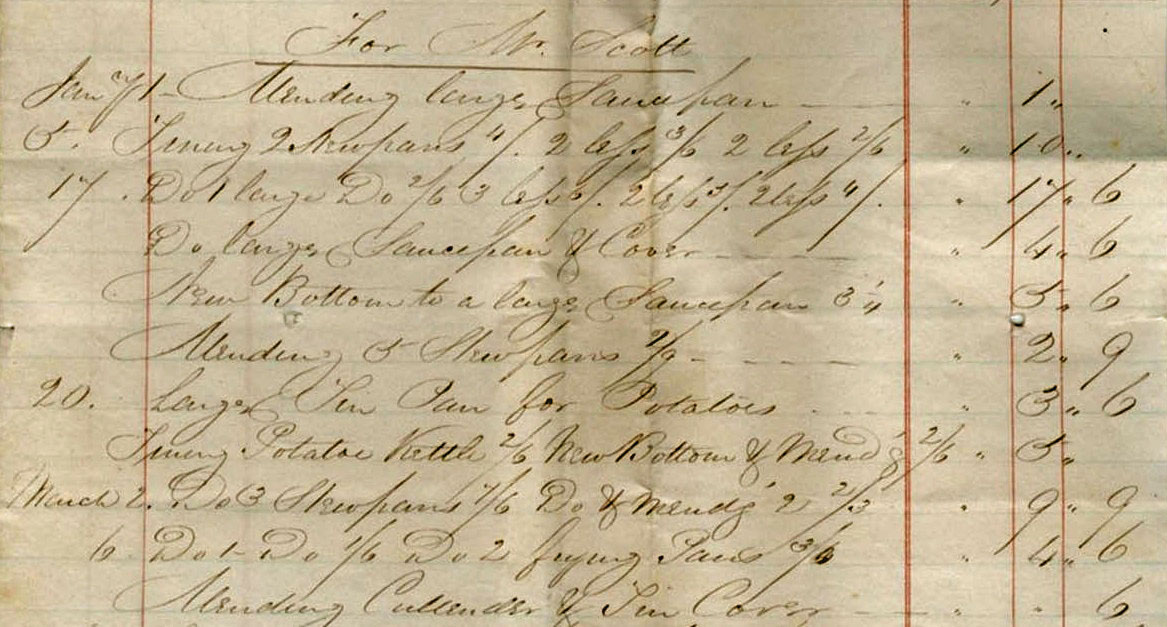 For Mr. Scott
Jany 1 - Mending large Saucepan - - - " 1 "
5. Tining 2 Stewpans 4/. 2 less 3/6 2 less 2/6 " 10 "
17. Do 1 large Do 2/6 3 less 6/. 2 less 5/. 2 less 4/. " 17 " 6
Do large Saucepan & Cover - - - " 4 " 6
New Bottom to a large Saucepan " 5 " 6
Mending 5 Stewpans 2/9 - - - - " 2 " 9
20. Large Tin Pan for Potatoes - - - " 3 " 6
Tining Potatoe Kettle 2/6 New Bottom & Mendg 2/6 " 5 "
March 2. Do 3 Stewpans 7/6 Do & Mendg 2 2/3 " 9 " 9
6 Do 1 - Do 1/6 Do 2 frying Pans 3/ " 4 " 6
Mending Cullender & Tin Cover - - " " 6